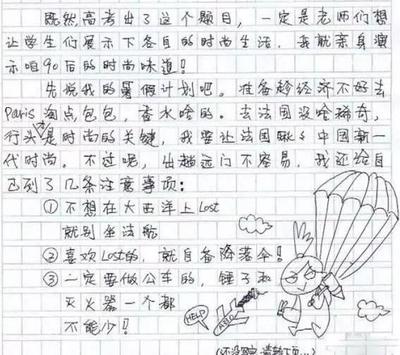 既然高考出了这个题目，一定是老师们想
让学生们展示下各自的时尚生活，我就亲身演
示咱90后的时尚味道！
先说我的暑假计划吧。准备趁经济不好去
Paris淘点包包，香水啥的。去法国没啥稀奇，
行头是时尚的关键，我要让法国瞅瞅中国新一
代时尚。不过呢，出趟远门不容易，我还给自
己列了几条注意事项：
①不想在大西洋上Lost
就别坐法航
②喜欢Lost的，就自备降落伞！
③一定要做公车的，锤子和
灭火器一个都
不能少！！
HELP
（还没写完，请翻下页...）